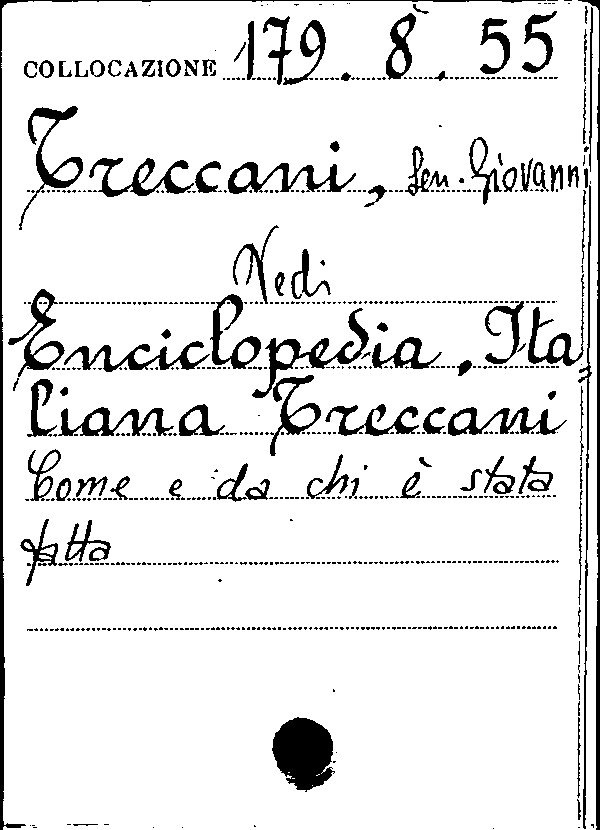 COLLOCAZIONE 179. 8. 55
Treccani, Sen. Giovanni
Vedi
Enciclopedia, Ita=
liana Treccani
Come e da chi è stata
fatta